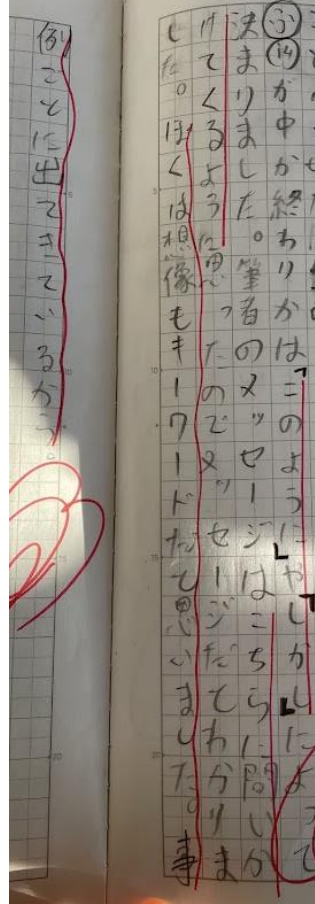 ㋛⑭が中か終わりかは「このように」や「しかし」によって
決まりました。筆者のメッセージはこちらに問いか
けてくるように思ったのでメッセージだてわかりま
した。ぼくは想像もキーワードだて思いました。事
例ごとに出てきているから。